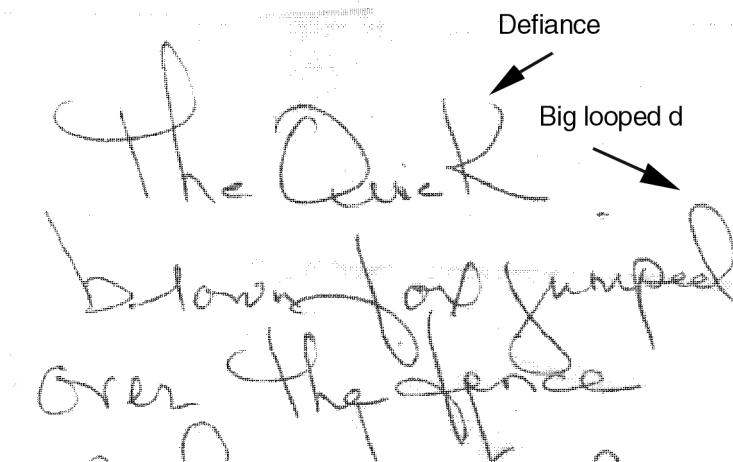 Defiance
Big looped d
The Quick
brown fox jumped
over the fence